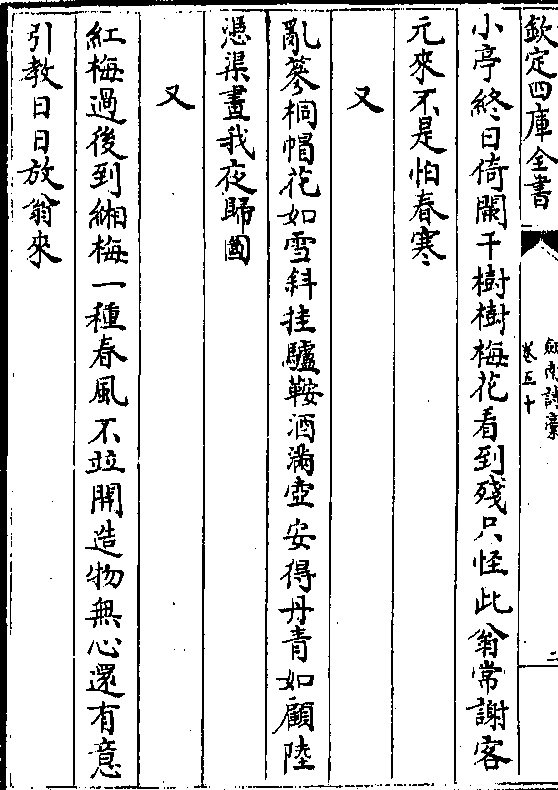 欽定四庫全書
劍南詩藁
卷五十
二
小亭終日倚闌干樹樹梅花看到殘只怪此翁常謝客
元來不是怕春寒
又
亂篸桐帽花如雪斜挂驢鞍酒滿壺安得丹青如顧陸
憑渠畫我夜歸圖
又
紅梅過後到緗梅一種春風不竝開造物無心還有意
引教日日放翁來